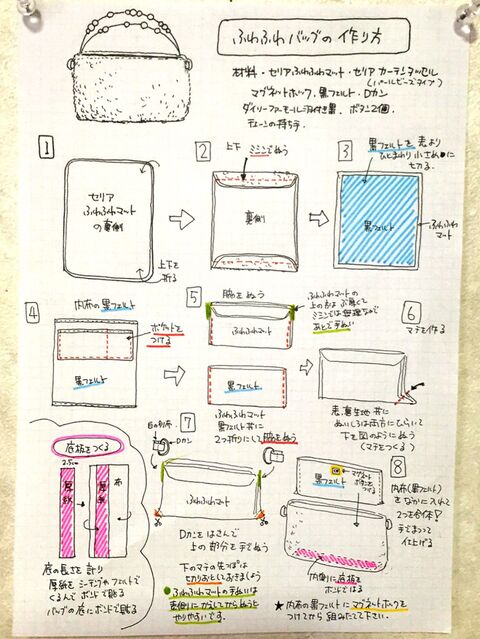 ふわふわバッグの作り方
材料・セリアふわふわマット・セリア カーテンタッセル
(パールビーズタイプ)
マグネットホック、黒フェルト・Dカン
ボタン2個.
チェーンの持ち手
1
セリア
ふわふわマット
の裏側
上下を
折る
2
上下 ミシンでぬう
裏側
3
黒フェルトを 表より
ひとまわり小さめに
切る.
黒フェルト
ふわふわ
マット
4
内布の黒フェルト
ポケットを
つける
黒フェルト
5
脇をぬう
ふわふわマットの
上の方は ぶ厚くて
ミシンでは無理なので
あとで手ぬい
ふわふわマット
黒フェルト
ふわふわマット
黒フェルト共に
2つ折りにして脇をぬう
6
マチを作る
表、裏生地共に
ぬいしろは両方にひらいて
下を図のようにぬう
(マチをつくる)
底板をつくる
2.5cm
厚紙
厚紙
布
底の長さを計り
厚紙をシーチングやフェルトで
くるんでボンドで貼る
バッグの底にボンドで貼る
7
Dカン
ふわふわマット
Dカンをはさんで
上の部分を手でぬう
下のマチの先っぽは
切りおとしておきましょう
ふわふわマットの手ぬいは
表側にかえしてからぬうと
やりやすいです。
8
マグネット
ボタンを
つける
黒フェルト
内布(黒フェルト)
をなかに入れて
2つを合体!
手でまつって
仕上げる
内側に底板を
ボンドではる
★内布の黒フェルトにマグネットホックを
つけてから組みたてて下さい.